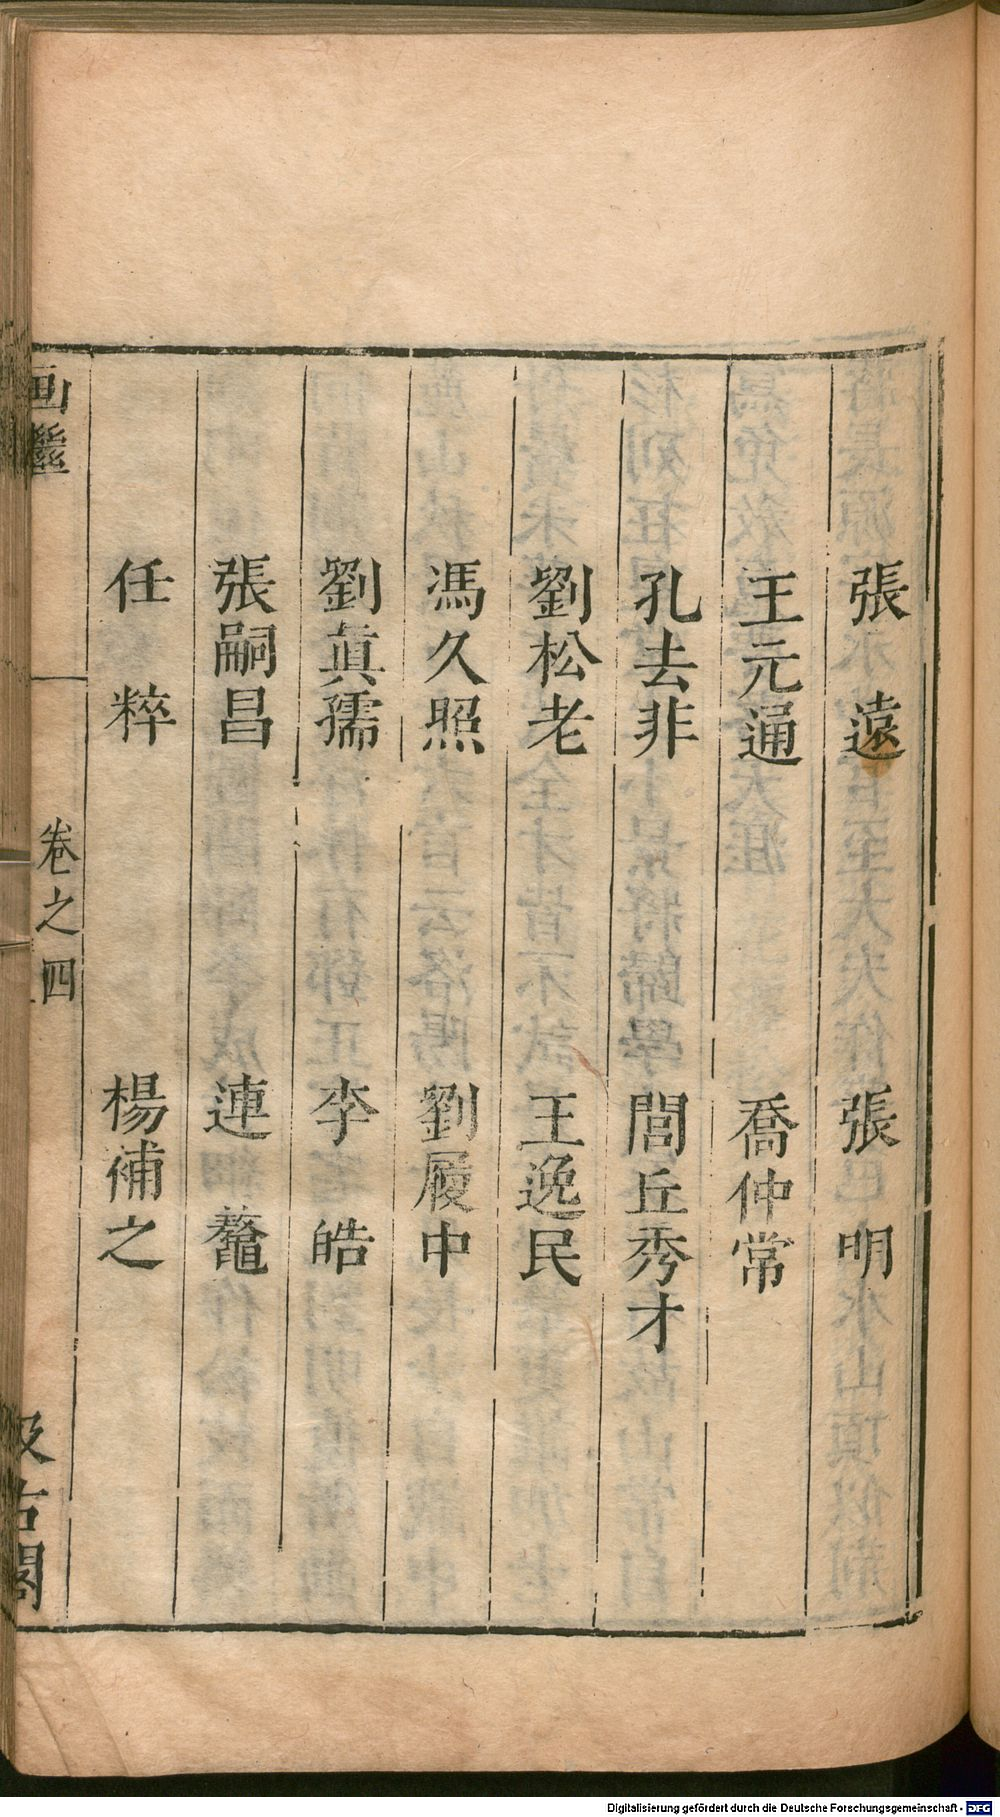 張　遠　張　明
王元通　喬仲常
孔去非　閭丘秀才
劉松老　王逸民
馮久照　劉履中
劉眞孺　李　皓
張嗣昌　連　鼇
任　粹　楊補之
画繼　卷之四　汲古閣
Digitalisierung gefördert durch die Deutsche Forschungsgemeinschaft - DFG